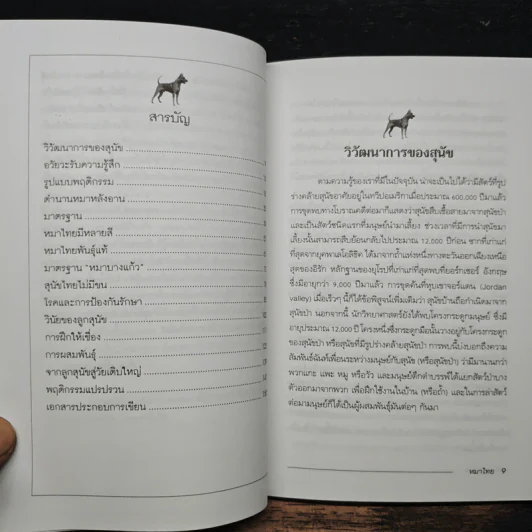 สารบัญ
วิวัฒนาการของสุนัข
อวัยวะรับความรู้สึก
รูปแบบพฤติกรรม
ตำนานหมาหลังอาน
มาตรฐาน
หมาไทยมีหลายสี
หมาไทยพันธุ์แท้
มาตรฐาน "หมาบางแก้ว"
สุนัขไทยไม่มีขน
โรคและการป้องกันรักษา
วินัยของลูกสุนัข
การฝึกให้เชื่อง
การผสมพันธุ์
จากลูกสุนัขสู่วัยเติบใหญ่
พฤติกรรมแปรปรวน
เอกสารประกอบการเขียน
วิวัฒนาการของสุนัข
ตามความรู้ของเราที่มีในปัจจุบัน น่าจะเป็นไปได้ว่ามีสัตว์ที่รูป
ร่างคล้ายสุนัขอาศัยอยู่ในทวีปอเมริกาเมื่อประมาณ 600,000 ปีมาแล้ว
การขุดพบทางโบราณคดีต่อมาก็แสดงว่าสุนัขสืบเชื้อสายมาจากสุนัขป่า
และเป็นสัตว์ชนิดแรกที่มนุษย์นำมาเลี้ยง ช่วงเวลาที่มีการนำสุนัขมา
เลี้ยงนั้นสามารถสืบย้อนกลับไปประมาณ 12,000 ปีก่อน ซากที่เก่าแก่
ที่สุดจากยุคพาเลโอลิธิค ได้มาจากถ้ำแห่งหนึ่งทางตะวันออกเฉียงเหนือ
สุดของอิรัก หลักฐานของยุโรปที่เก่าแก่ที่สุดพบที่ยอร์กเชอร์ อังกฤษ
ซึ่งมีอายุกว่า 9,000 ปีมาแล้ว การขุดค้นที่หุบเขาจอร์แดน (Jordan
valley) เมื่อเร็วๆ นี้ก็ได้ข้อพิสูจน์เพิ่มเติมว่า สุนัขบ้านถือกำเนิดมาจาก
สุนัขป่า นอกจากนี้ นักวิทยาศาสตร์ยังได้พบโครงกระดูกมนุษย์ ซึ่งมี
อายุประมาณ 12,000 ปี โครงหนึ่งซึ่งกระดูกมือนั้นวางอยู่กับโครงกระดูก
ของสุนัขป่า หรือสุนัขที่มีรูปร่างคล้ายสุนัขป่า การพบนี้บ่งบอกถึงความ
สัมพันธ์ฉันท์เพื่อนระหว่างมนุษย์กับสุนัข (หรือสุนัขป่า) ว่ามีมานานกว่า
พวกแกะ แพะ หมู หรือวัว และมนุษย์ดึกดำบรรพ์ได้แยกสัตว์ป่าบาง
ตัวออกมาจากพวก เพื่อฝึกใช้งานในบ้าน (หรือถ้ำ) และในการล่าสัตว์
ต่อมามนุษย์ก็ได้เป็นผู้ผสมพันธุ์มันต่อๆ กันมา
หมาไทย ๑